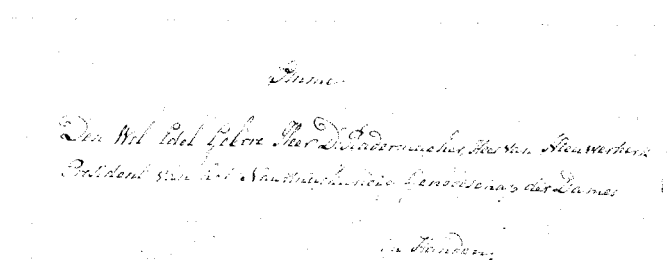 Den Wel Edel Gebore Heer D: Radermacher, Heer van Nieuwerkerk
President van het Natuurkundig Genootschap der Dames
in Handen